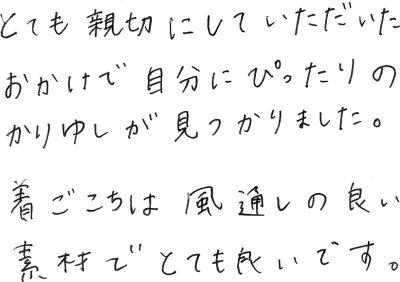 とても親切にしていただいた
おかげで自分にぴったりの
かりゆしが見つかりました。
着ごこちは風通しの良い
素材でとても良いです。